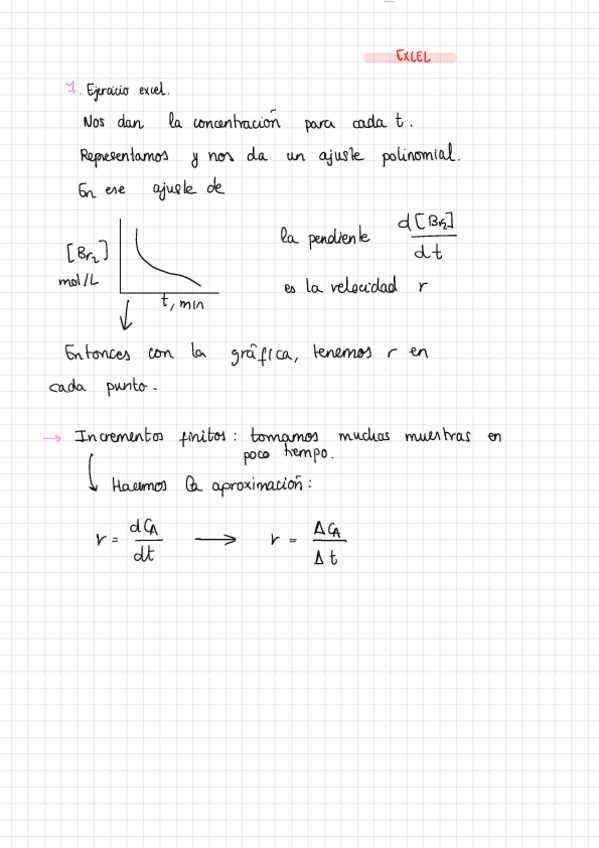 EXCEL
7. Ejercicio excel.
Nos dan la concentración para cada t.
Representamos y nos da un ajuste polinomial.
En ese ajuste de
[Br₂]
mol/L
t, min
la pendiente d[Br₂]/dt
es la velocidad r
Entonces con la gráfica, tenemos r en
cada punto.
→ Incrementos finitos: tomamos muchas muestras en
poco tiempo.
Hacemos la aproximación:
r = dCA/dt → r = ΔCA/Δt